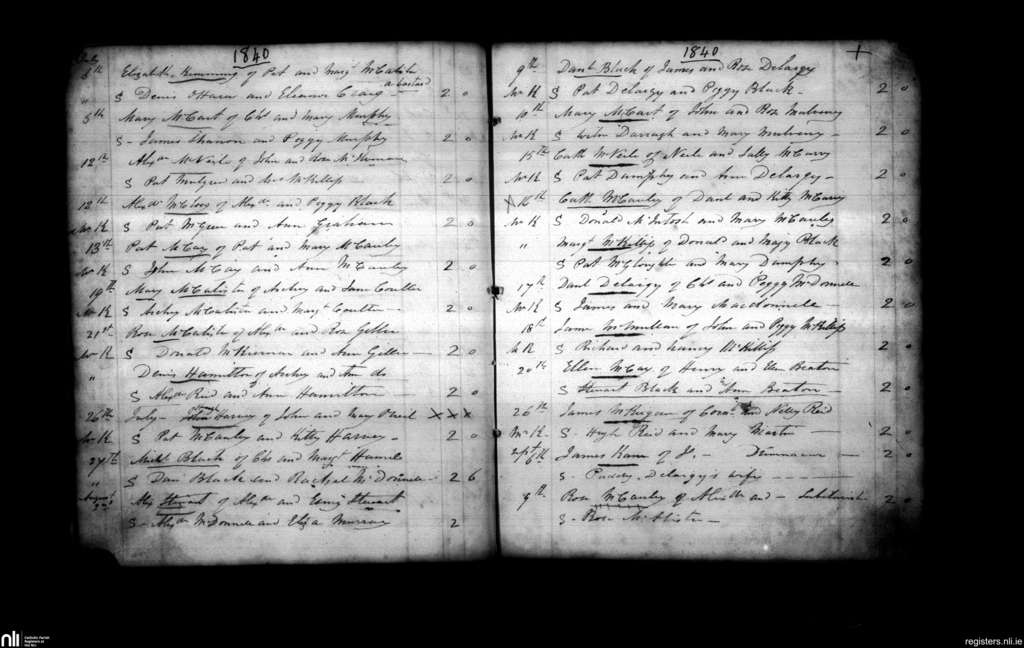 1840
July
5th Elizabeth of Pat and Margt McCalister
a bastard
" S Denis O Hara and Eleanor Craig 2 0
5th Mary McCart of Chs and Mary Murphy
S - James Shannon and Peggy Murphy 2 0
12th Alexr McNeile of John and Rose
S Pat Mulgrew and McKillip 2 0
12th Alexr of Alexr and Peggy Black
Mr K S Pat McGreer and Ann Graham 2 0
13th Pat McCay of Pat and Mary McCauley
Mr K S John McCay and Ann McCauley 2 0
19th Mary McCalister of Archy and Jane Coulter
Mr K S Archy McCalister and Margt Coulter - 2 0
21st Rose McCalister of Alexr and Rose Gillen
Mr K S Donald McKiernan and Ann Gillen 2 0
" Denis Hamilton of Archy and Ann do
S Alexr Reid and Ann Hamilton 2 0
26th July - Harvey of John and Mary O'Neil x x x
Mr K S Pat McCauley and Kitty Harvey - 2 0
27th Michl Black of Chs and Margt Hamil
" S Danl Black and Rachel McDonnell 2 6
August 2nd Alexr Stewart of Alexr and Stewart
S - Alexr McDonnell and Eliza Murray 2
1840
9th Danl Black of James and Rose Delargy
Mr K S Pat Delargy and Peggy Black - 2 0
10th Mary McCart of John and Rose Mulvenny
Mr K S John Darragh and Mary Mulvenny - 2 0
15th Cath McNeile of Neile and Sally McCarry
Mr K S Pat Dumphy and Ann Delargy - 2 0
X 16th Cath McCauley of Danl and Kitty McCarry
Mr K S Donald McIntosh and Mary McCauley 2 0
" Margt McKillip of Donald and Mary Black
S Pat and Mary Dumphy - 2 0
17th Danl Delargy of Chs and Peggy McDonnell
Mr K S James and Mary Macdonnell - 2 0
18th James McMullan of John and Peggy McKillip
Mr K S Richard and Nancy McKillip 2 0
20th Ellen McCay of Henry and Elen Beaton
S Stewart Black and Ann Beaton - 2 0
26th James of and Nelly Reid
Mr K - S - Hugh Reid and Mary Martin 2 0
Sept 6th James Kane of Js. - 2 0
S - Paddy Delargy's wife - - - -
9th Rose McCauley of Alexdr and - 2 0
S - Rose McAlister -
+
nli Catholic Parish Registers at the NLI
registers.nli.ie